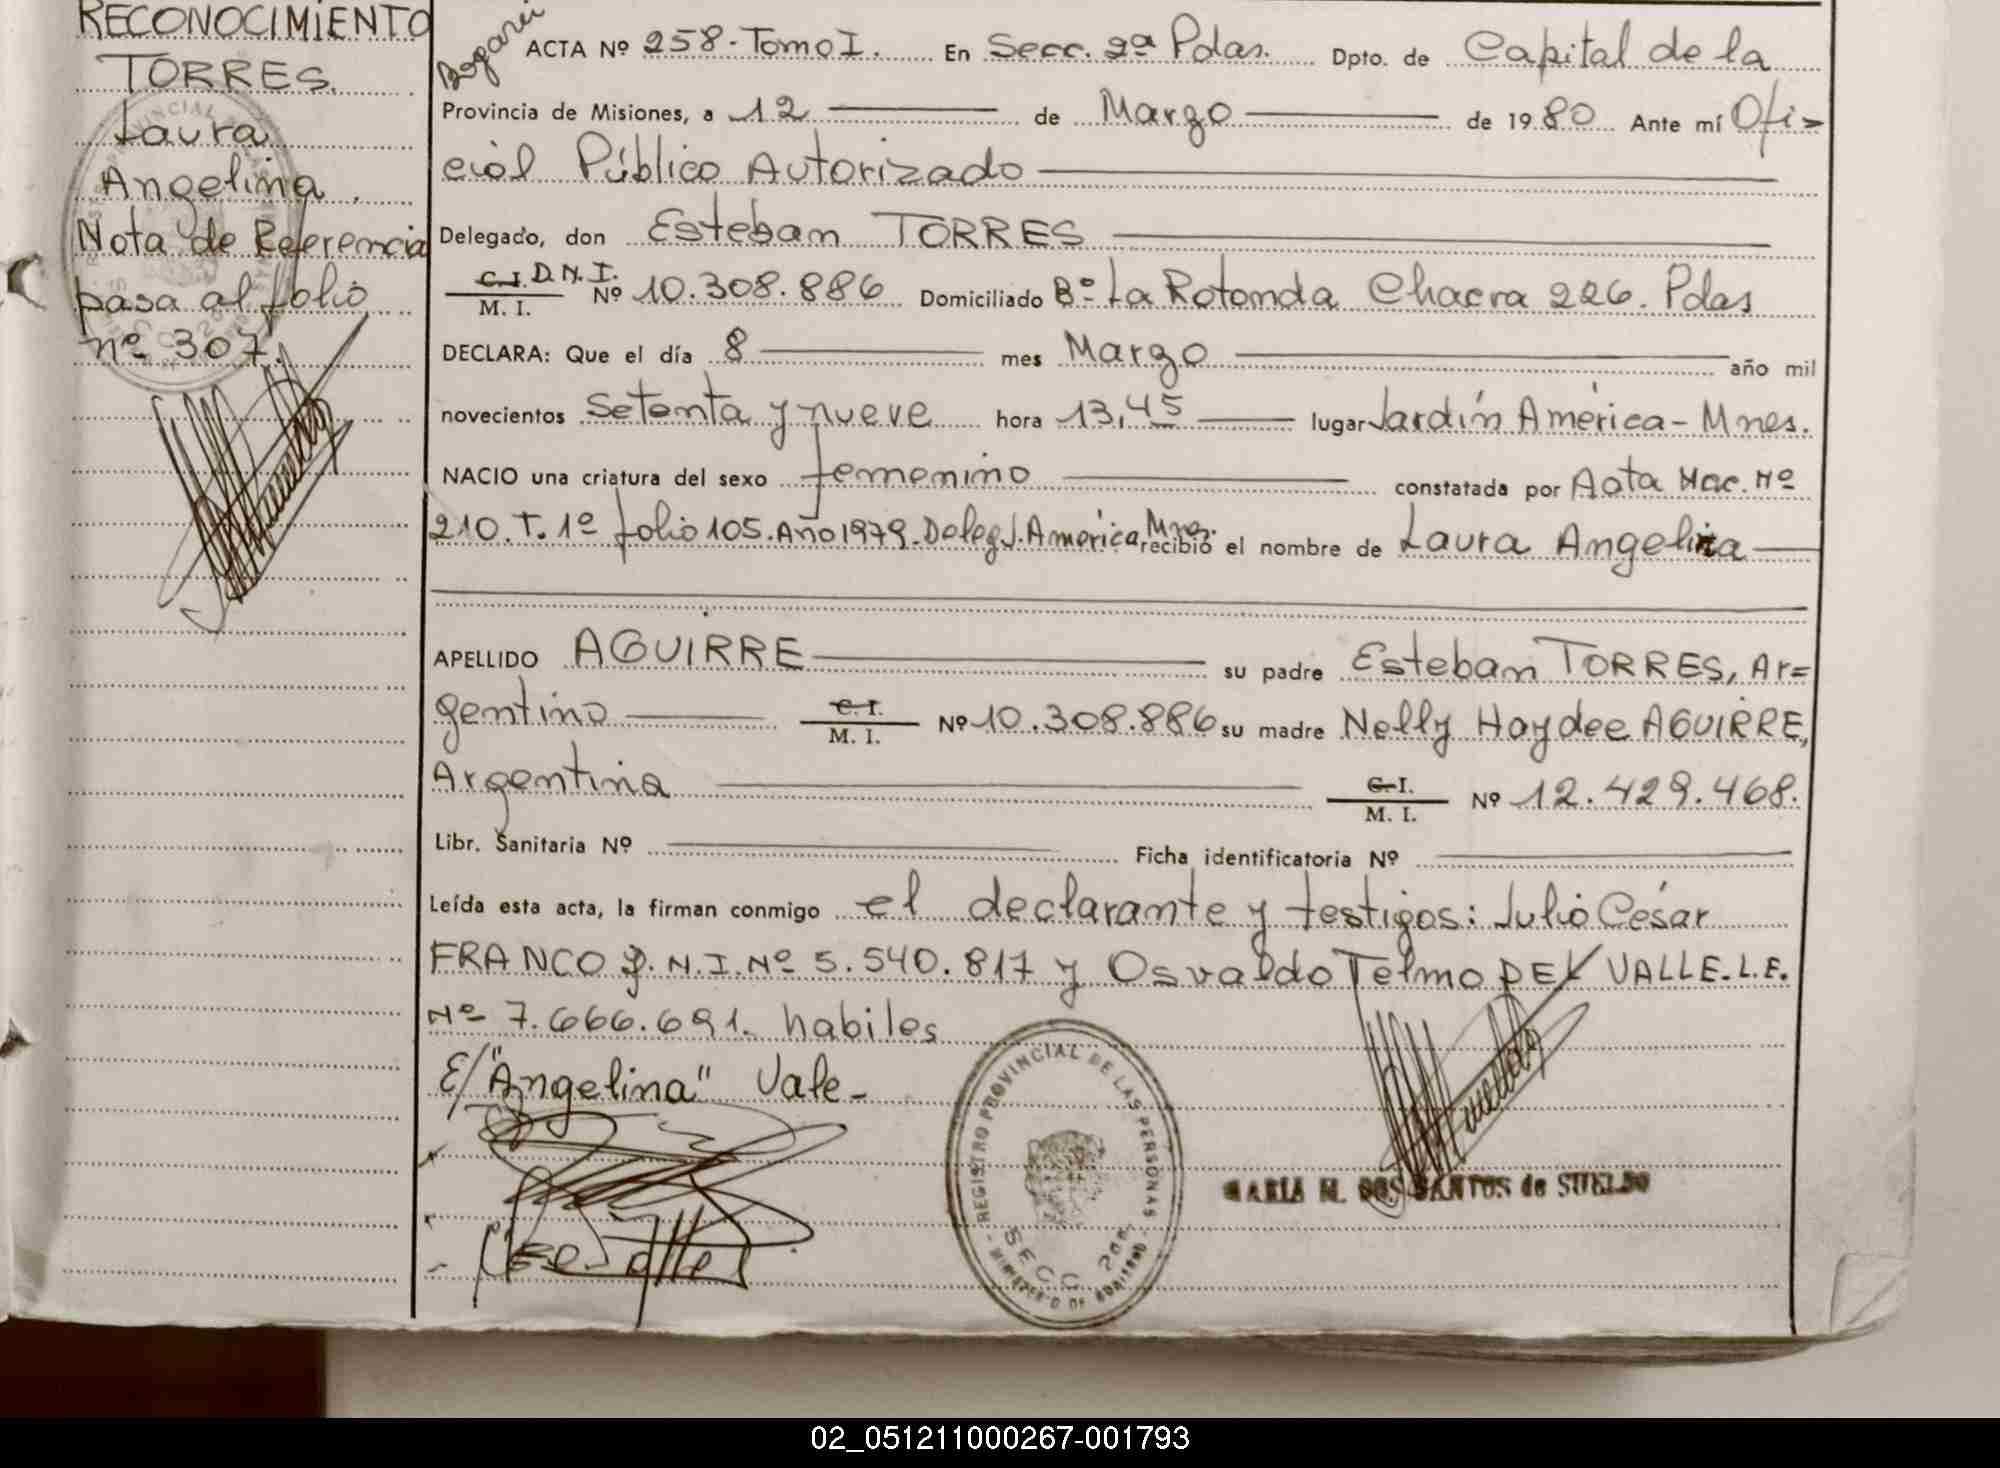 RECONOCIMIENTO
TORRES.
Laura
Angelina.
Nota de Referencia
pasa al folio
nº 307.
ACTA Nº 258-Tomo I. En Secc. 2ª Pdas. Dpto. de Capital de la
Provincia de Misiones, a 12 de Marzo de 1980 Ante mí Ofi=
cial Público Autorizado
Delegado, don Esteban TORRES
C.I. D.N.I.
M. I. Nº 10.308.886 Domiciliado Bº La Rotonda Chacra 226. Pdas
DECLARA: Que el día 8 mes Marzo año mil
novecientos setenta y nueve hora 13,45 lugar Jardín América - Mnes.
NACIO una criatura del sexo femenino constatada por Acta Nac. Nº
210. T. 1º folio 105. Año 1979. Deleg. J. América, Mnes. recibió el nombre de Laura Angelina
APELLIDO AGUIRRE su padre Esteban TORRES, Ar=
gentino C.I. M. I. Nº 10.308.886 su madre Nelly Haydee AGUIRRE,
Argentina C.I. M. I. Nº 12.429.468.
Libr. Sanitaria Nº Ficha identificatoria Nº
Leída esta acta, la firman conmigo el declarante y testigos: Julio César
FRANCO D.N.I. Nº 5.540.817 y Osvaldo Telmo DEL VALLE. L.E.
Nº 7.666.691. habiles
E/"Angelina" Vale-
REGISTRO PROVINCIAL DE LAS PERSONAS
SECC. 2da.
MINISTERIO DE GOBIERNO
MARIA M. DOS SANTOS de SUELDO
02_051211000267-001793